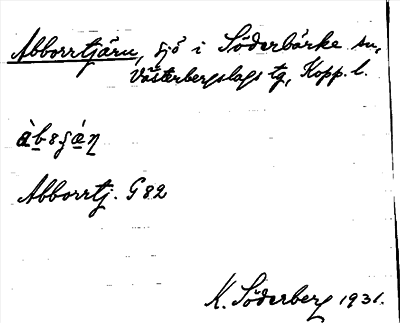 Abborrtjärn, sjö i Söderbärke sn,
Västerbergslags tg, Kopp. l.
Abborrtj. G82
K. Söderberg 1931.